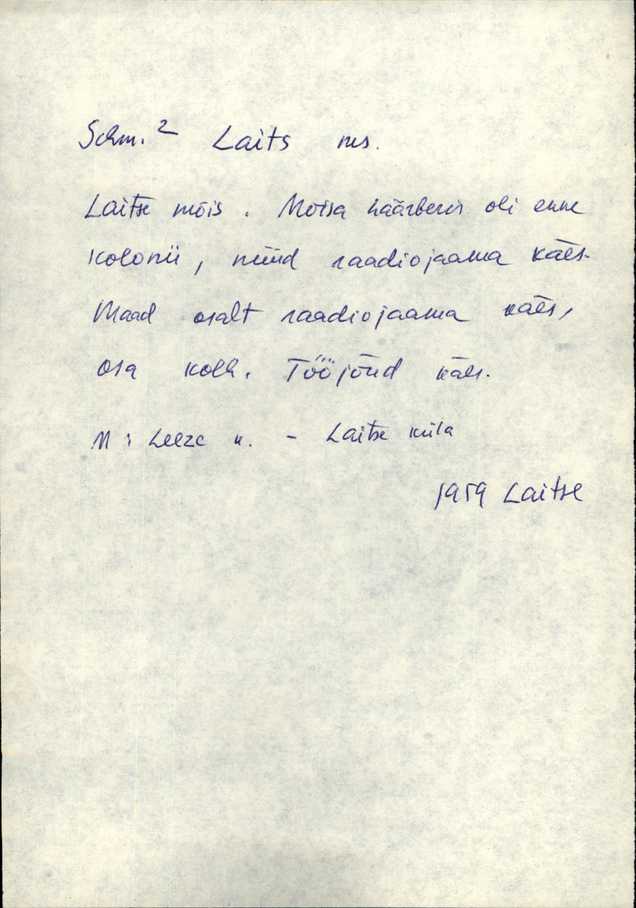 Schm.² Laits ms.
Laitse mõis. Mõisa häärberis oli enne
kolonii, nüüd raadiojaama käes.
Maad osalt raadiojaama käes,
osa kolh. Tööjõud käes.
M: Leeze k. - Laitse küla
1959 Laitse